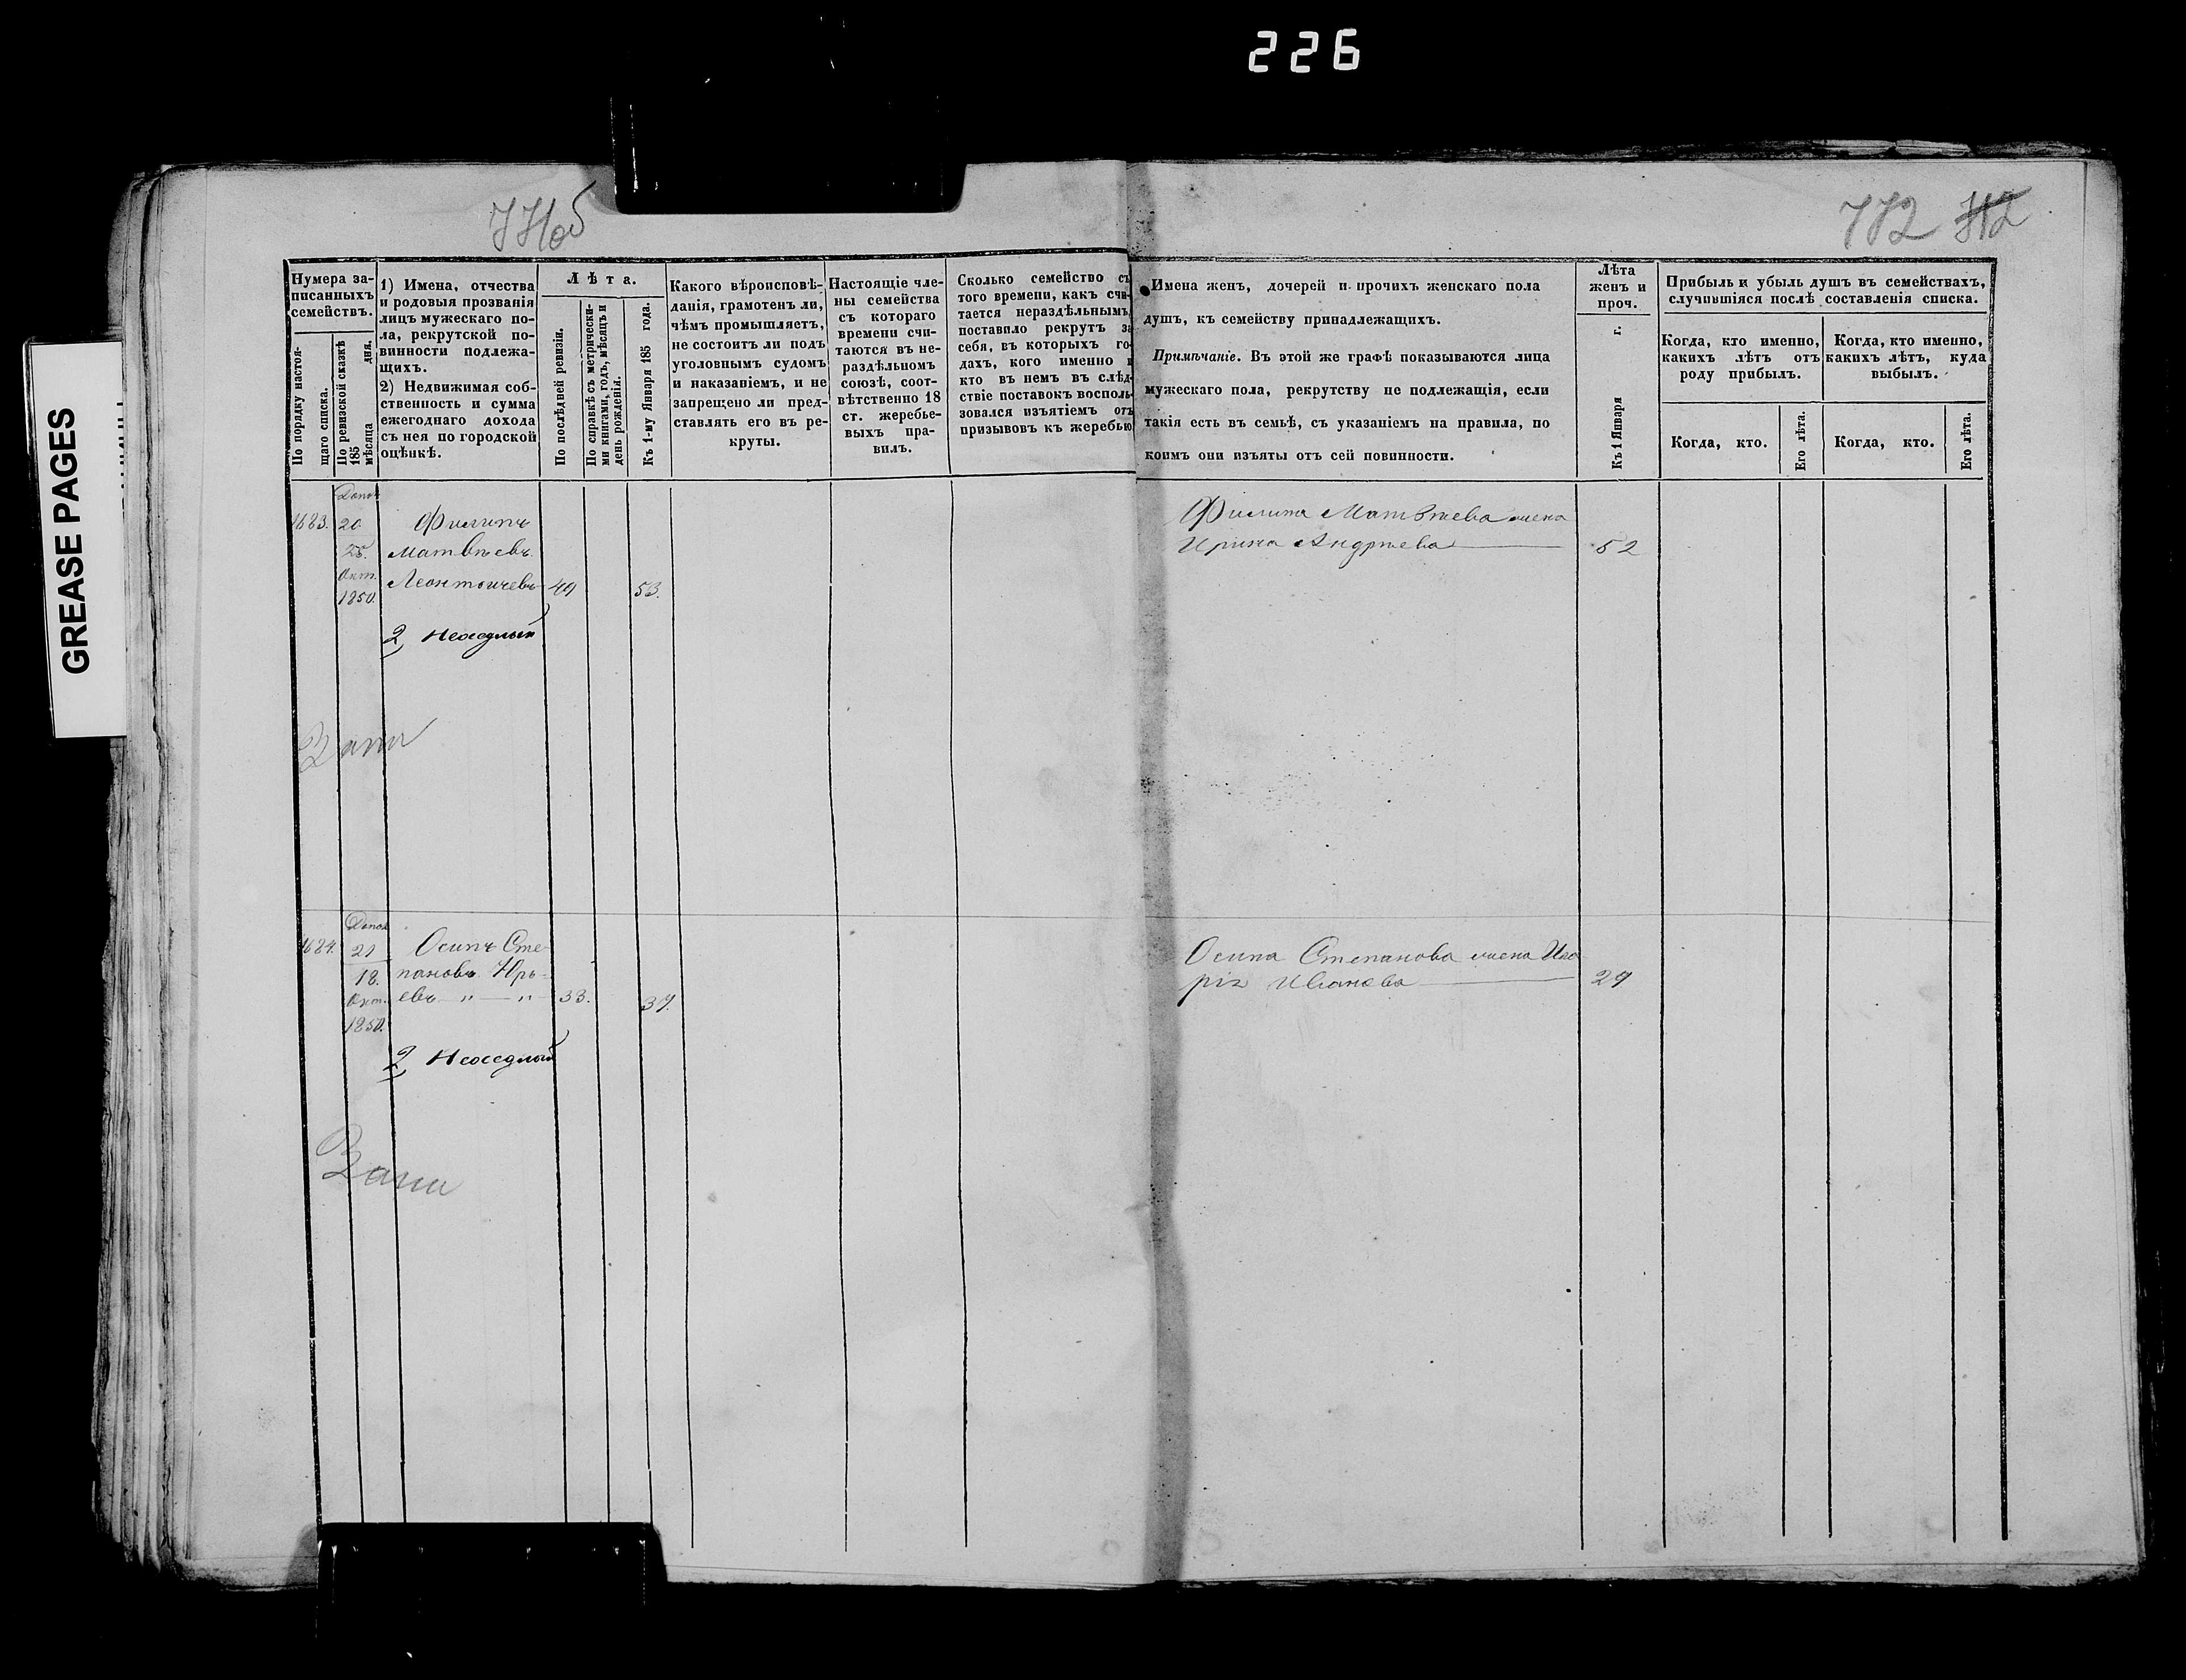 226
GREASE PAGES
772
Нумера за-
писанныхъ
семействъ.
По порядку настоя-
щаго списка.
По ревизской сказкѣ
185
мѣсяца дня.
1) Имена, отчества
и родовыя прозванія
лицъ мужескаго по-
ла, рекрутской по-
винности подлежа-
щихъ.
2) Недвижимая соб-
ственность и сумма
ежегоднаго дохода
съ нея по городской
оцѣнкѣ.
Лѣта.
По послѣдней ревизіи.
По справкѣ съ метрически-
ми книгами, годъ, мѣсяцъ и
день рожденія.
Къ 1-му Января 185 года.
Какого вѣроисповѣ-
данія, грамотенъ ли,
чѣмъ промышляетъ,
не состоитъ ли подъ
уголовнымъ судомъ
и наказаніемъ, и не
запрещено ли пред-
ставлять его въ ре-
круты.
Настоящіе чле-
ны семейства
съ котораго
времени счи-
таются въ не-
раздѣльномъ
союзѣ, соот-
вѣтственно 18
ст. жеребье-
выхъ пра-
вилъ.
Сколько семейство съ
того времени, какъ счи-
тается нераздѣльнымъ,
поставило рекрутъ за
себя, въ которыхъ го-
дахъ, кого именно и
кто въ немъ въ слѣд-
ствіе поставокъ восполь-
зовался изъятіемъ отъ
призывовъ къ жеребью
Имена женъ, дочерей и прочихъ женскаго пола
душъ, къ семейству принадлежащихъ.
Примѣчаніе. Въ этой же графѣ показываются лица
мужескаго пола, рекрутству не подлежащія, если
такія есть въ семьѣ, съ указаніемъ на правила, по
коимъ они изъяты отъ сей повинности.
Лѣта
женъ и
проч.
Къ 1 Января г.
Прибыль и убыль душъ въ семействахъ,
случившіяся послѣ составленія списка.
Когда, кто именно,
какихъ лѣтъ отъ
роду прибылъ.
Когда, кто именно,
какихъ лѣтъ, куда
выбылъ.
Когда, кто.
Его лѣта.
Когда, кто.
Его лѣта.
1683. 20 Филипъ
25. Матвѣевъ
Окт. Леонтьичевъ 49 53.
1850.
2 Неоседлый
Филипа Матвѣева жена
Ирина Андреева 52
1684. 21 Осипъ Сте-
18. пановъ Юрь-
Окт. евъ " — " 33. 37.
1850.
2 Неоседлый
Осипа Степанова жена
Иванова 29